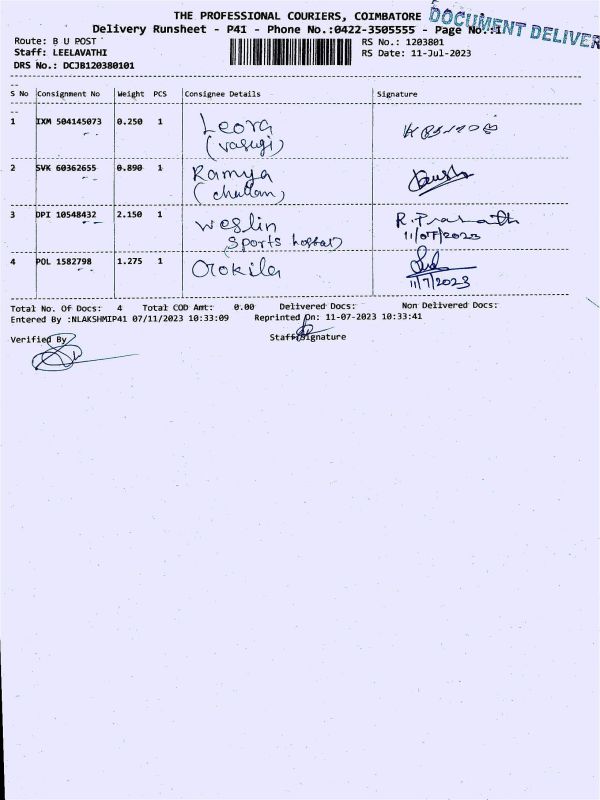 THE PROFESSIONAL COURIERS, COIMBATORE
DOCUMENT DELIVER
Delivery Runsheet - P41 - Phone No.:0422-3505555 - Page No.:1
Route: B U POST
RS No.: 1203801
Staff: LEELAVATHI
RS Date: 11-Jul-2023
DRS No.: DCJB120380101
S No Consignment No Weight PCS Consignee Details Signature
1 IXM 504145073 0.250 1 Leora
(vasugi)
2 SVK 60362655 0.890 1 Ramya
(chuttan)
3 DPI 10548432 2.150 1 Weslin R. Prasanth
Sports hostal) 11/07/2023
4 POL 1582798 1.275 1 Orokila
11/7/2023
Total No. Of Docs: 4 Total COD Amt: 0.00 Delivered Docs: Non Delivered Docs:
Entered By :NLAKSHMIP41 07/11/2023 10:33:09 Reprinted On: 11-07-2023 10:33:41
Verified By Staff Signature